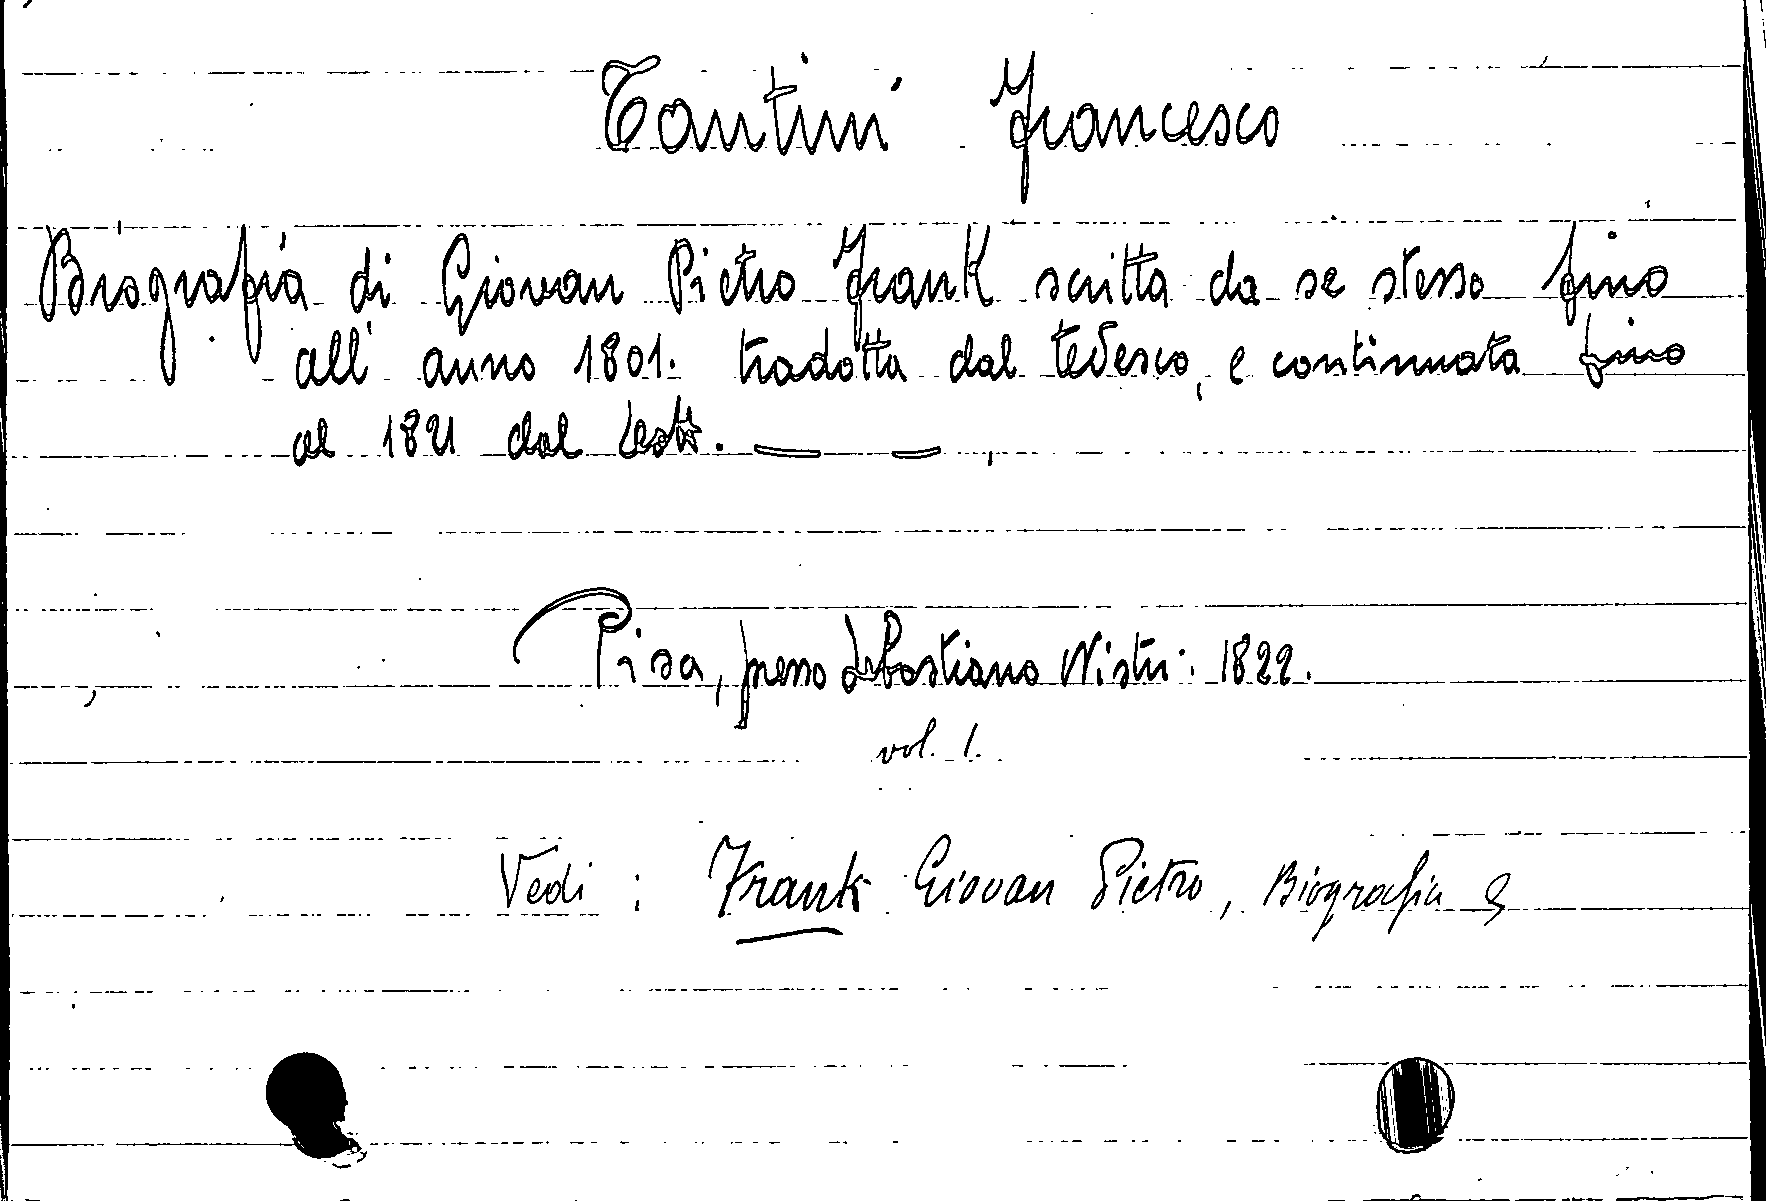 Tantini Francesco
Biografia di Giovan Pietro Frank scritta da se stesso fino
all' anno 1801. tradotta dal tedesco, e continuata fino
al 1821 dal
Pisa, presso Sebastiano Nistri. 1822.
vol. 1.
Vedi : Frank Giovan Pietro, Biografia